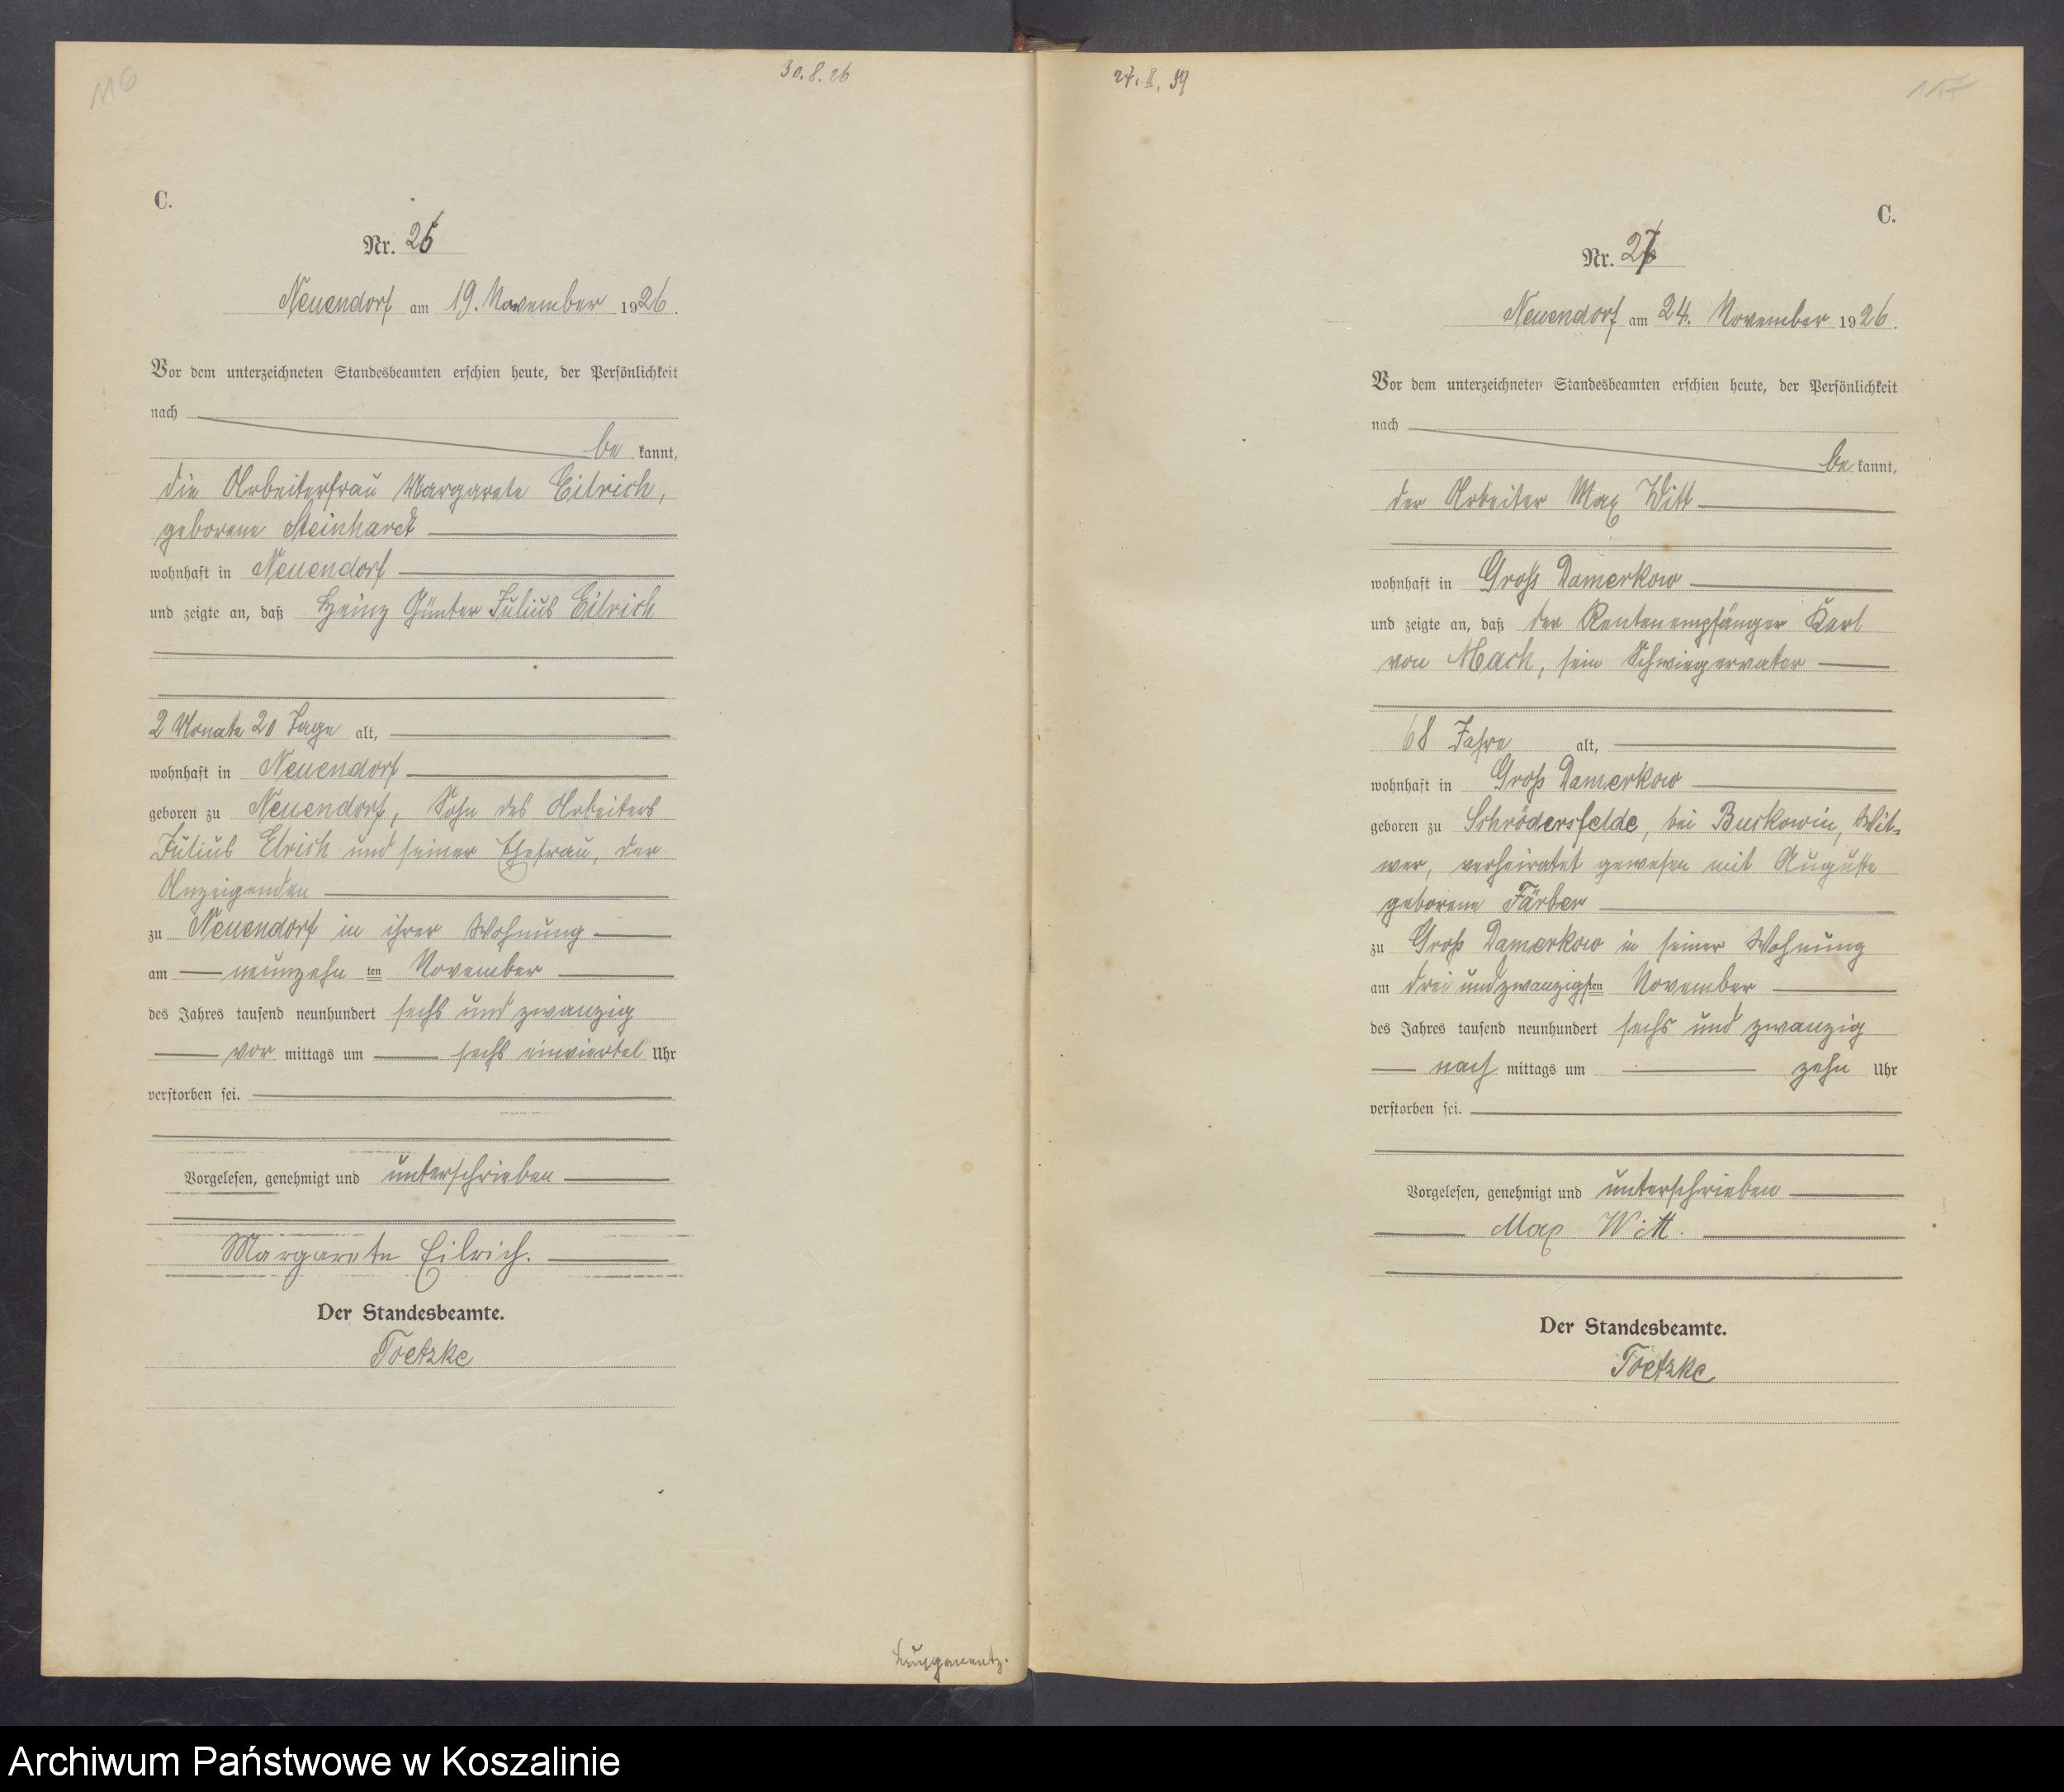 116
30.8.26
C.
Nr. 26
Neuendorf am 19. November 1926.
Vor dem unterzeichneten Standesbeamten erschien heute, der Persönlichkeit
nach
be kannt,
die Arbeiterfrau Margarete Eilrich,
geborene Steinhardt
wohnhaft in Neuendorf
und zeigte an, daß Heinz Günter Julius Eilrich
2 Monate 20 Tage alt,
wohnhaft in Neuendorf
geboren zu Neuendorf, Sohn des Arbeiters
Julius Elrich und seiner Ehefrau, der
Anzeigenden
zu Neuendorf in ihrer Wohnung
am neunzehn ten November
des Jahres tausend neunhundert sechs und zwanzig
vor mittags um sechs einviertel Uhr
verstorben sei.
Vorgelesen, genehmigt und unterschrieben
Margarete Eilrich.
Der Standesbeamte.
Toetzke
27. II. 39
117
C.
Nr. 27
Neuendorf am 24. November 1926.
Vor dem unterzeichneten Standesbeamten erschien heute, der Persönlichkeit
nach
be kannt,
der Arbeiter Max Witt
wohnhaft in Groß Damerkow
und zeigte an, daß der Rentenempfänger Karl
von Mach, sein Schwiegervater
68 Jahre alt,
wohnhaft in Groß Damerkow
geboren zu Schrödersfelde, bei Buskowin, Wit-
wer, verheiratet gewesen mit Auguste
geborene Färber
zu Groß Damerkow in seiner Wohnung
am drei und zwanzigsten November
des Jahres tausend neunhundert sechs und zwanzig
nach mittags um zehn Uhr
verstorben sei.
Vorgelesen, genehmigt und unterschrieben
Max Witt.
Der Standesbeamte.
Toetzke
Archiwum Państwowe w Koszalinie